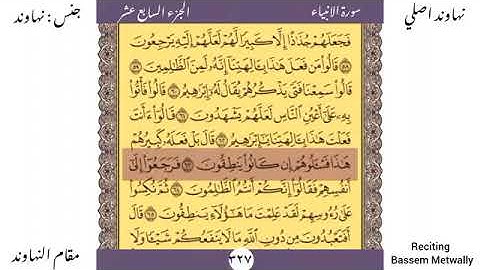 نهاوند اصلي
سورة الانبياء
الجزء السابع عشر
جنس : نهاوند
فَجَعَلَهُمْ جُذَٰذًا إِلَّا كَبِيرًا لَّهُمْ لَعَلَّهُمْ إِلَيْهِ يَرْجِعُونَ
٥٨ قَالُوا۟ مَن فَعَلَ هَٰذَا بِـَٔالِهَتِنَآ إِنَّهُۥ لَمِنَ ٱلظَّٰلِمِينَ ٥٩
قَالُوا۟ سَمِعْنَا فَتًى يَذْكُرُهُمْ يُقَالُ لَهُۥٓ إِبْرَٰهِيمُ ٦٠ قَالُوا۟ فَأْتُوا۟
بِهِۦ عَلَىٰٓ أَعْيُنِ ٱلنَّاسِ لَعَلَّهُمْ يَشْهَدُونَ ٦١ قَالُوٓا۟ ءَأَنتَ
فَعَلْتَ هَٰذَا بِـَٔالِهَتِنَا يَٰٓإِبْرَٰهِيمُ ٦٢ قَالَ بَلْ فَعَلَهُۥ كَبِيرُهُمْ
هَٰذَا فَسْـَٔلُوهُمْ إِن كَانُوا۟ يَنطِقُونَ ٦٣ فَرَجَعُوٓا۟ إِلَىٰٓ
أَنفُسِهِمْ فَقَالُوٓا۟ إِنَّكُمْ أَنتُمُ ٱلظَّٰلِمُونَ ٦٤ ثُمَّ نُكِسُوا۟
عَلَىٰ رُءُوسِهِمْ لَقَدْ عَلِمْتَ مَا هَٰٓؤُلَآءِ يَنطِقُونَ ٦٥ قَالَ
أَفَتَعْبُدُونَ مِن دُونِ ٱللَّهِ مَا لَا يَنفَعُكُمْ شَيْـًٔا وَلَا
٣٢٧
مقام النهاوند
Reciting
Bassem Metwally